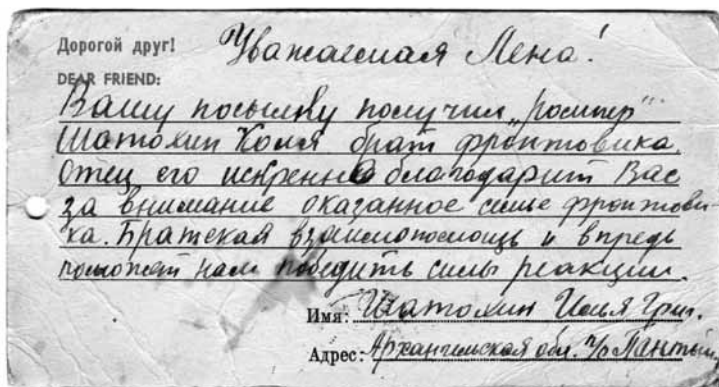 Дорогой друг! Уважаемая Лена!
DEAR FRIEND:
Вашу посылку получил „ромпер"
Шатохин Коля брат фронтовика.
Отец его искренне благодарит Вас
за внимание оказанное семье фронтови-
ка. Братская взаимопомощь и впредь
поможет нам победить силы реакции.
Имя: Шатохин Илья Григ.
Адрес: Архангельская обл. п/о